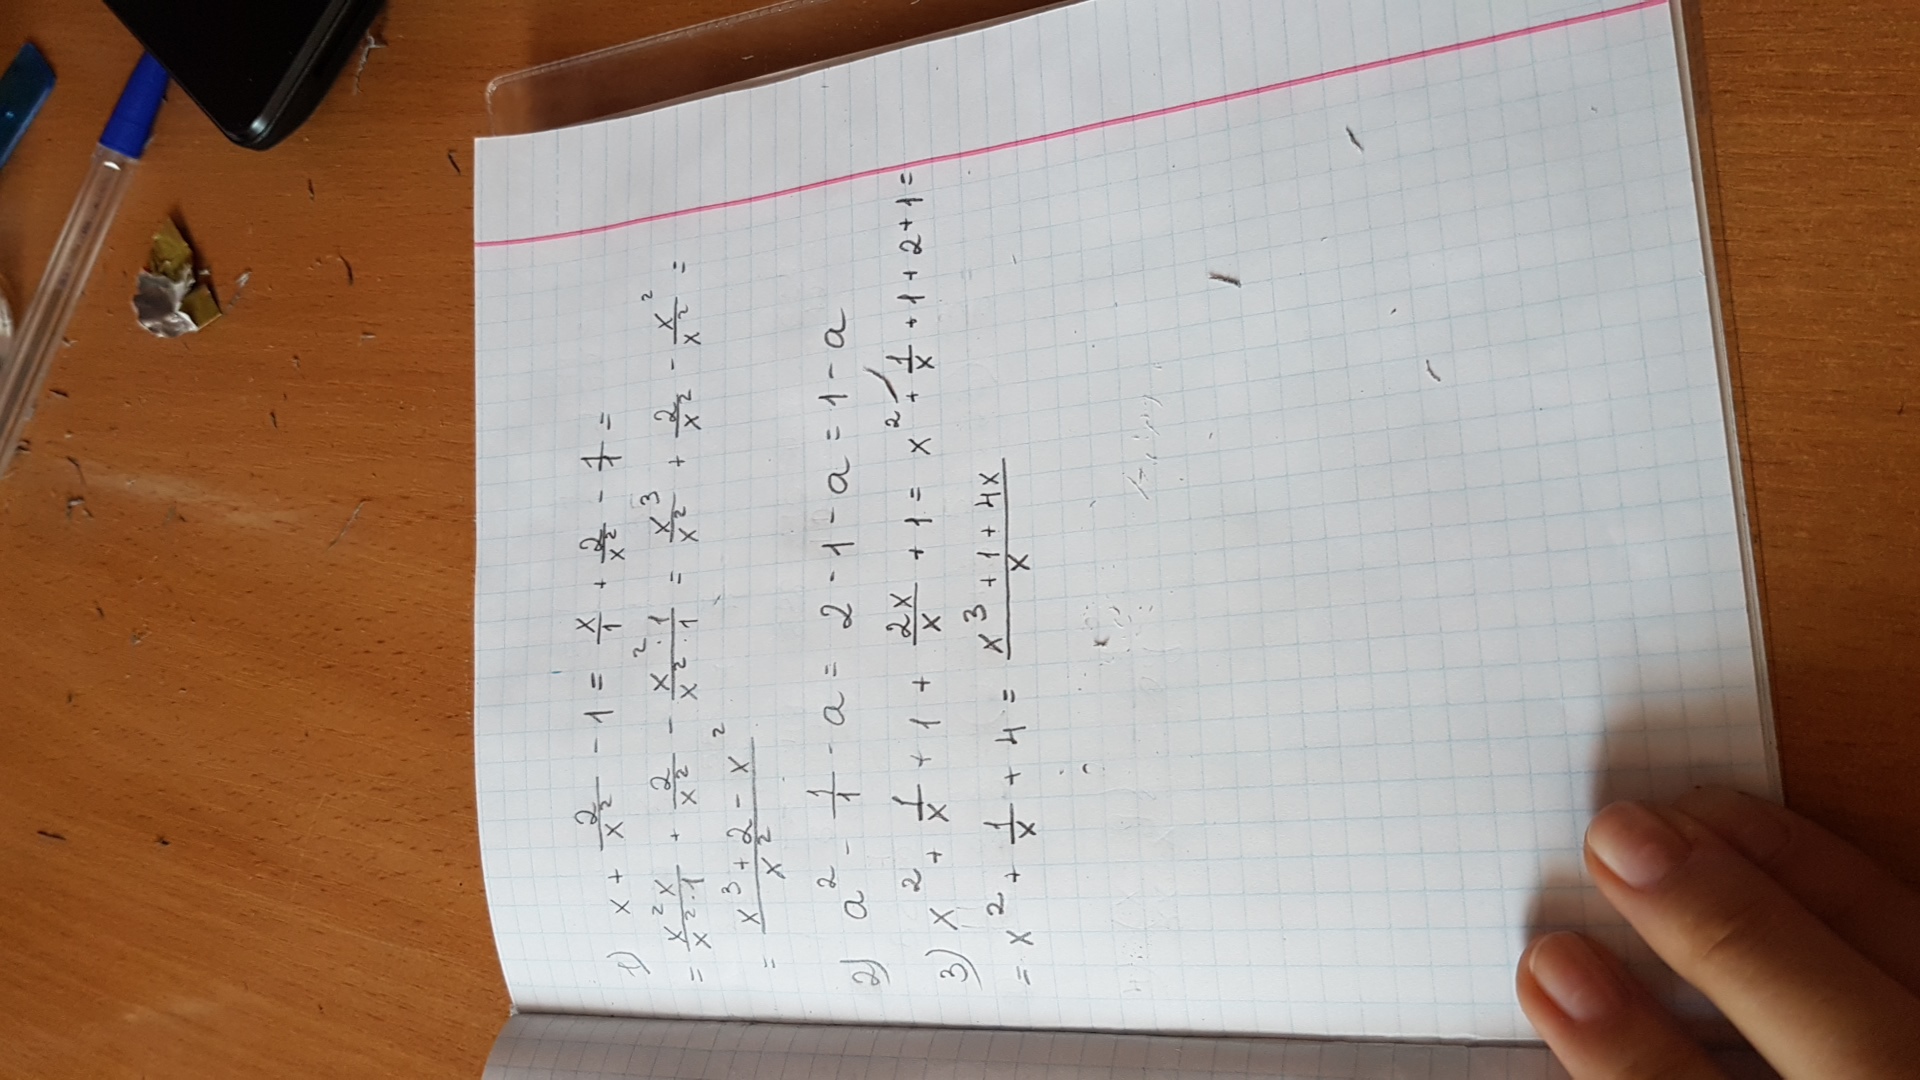 1) x + 2/x² - 1 = x/1 + 2/x² - 1/1 =
= x²x/x²·1 + 2/x² - x²·1/x²·1 = x³/x² + 2/x² - x²/x² =
= x³+2-x²/x²
2) a² - 1/1 - a = 2 - 1 - a = 1 - a
3) x² + 1/x + 1 + 2x/x + 1 = x² + 1/x + 1 + 2 + 1 =
= x² + 1/x + 4 = x³+1+4x/x